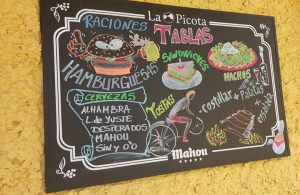 La Picota
RACIONES
TABLAS
SANDWICHES
HAMBURGUESAS
NACHOS
CERVEZAS
ALHAMBRA
L. de YUSTE
DESPERADOS
MAHOU
SIN y 0'0
TOSTAS
costillar +
Patatas
+ ensalada
Mahou